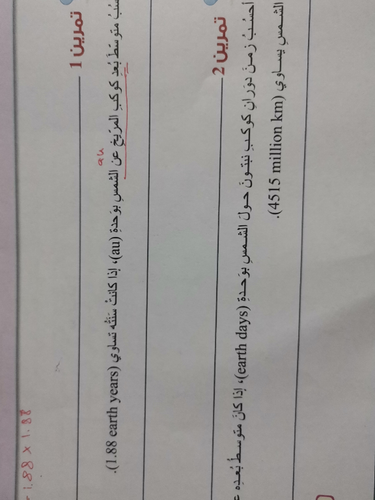 تمرين 1
متوسط بُعد كوكب المريخ عن الشمس بوَحدةِ (au)، إذا كانت سَنَتُه تساوي (1.88 earth years).
au
تمرين 2
أحسُبُ زمنَ دَوَرانِ كوكبِ نبتونَ حولَ الشمسِ بوَحدةِ (earth days)، إذا كان متوسطُ بُعدِه
الشمسِ يساوي (4515 million km).
1.88 × 1.88